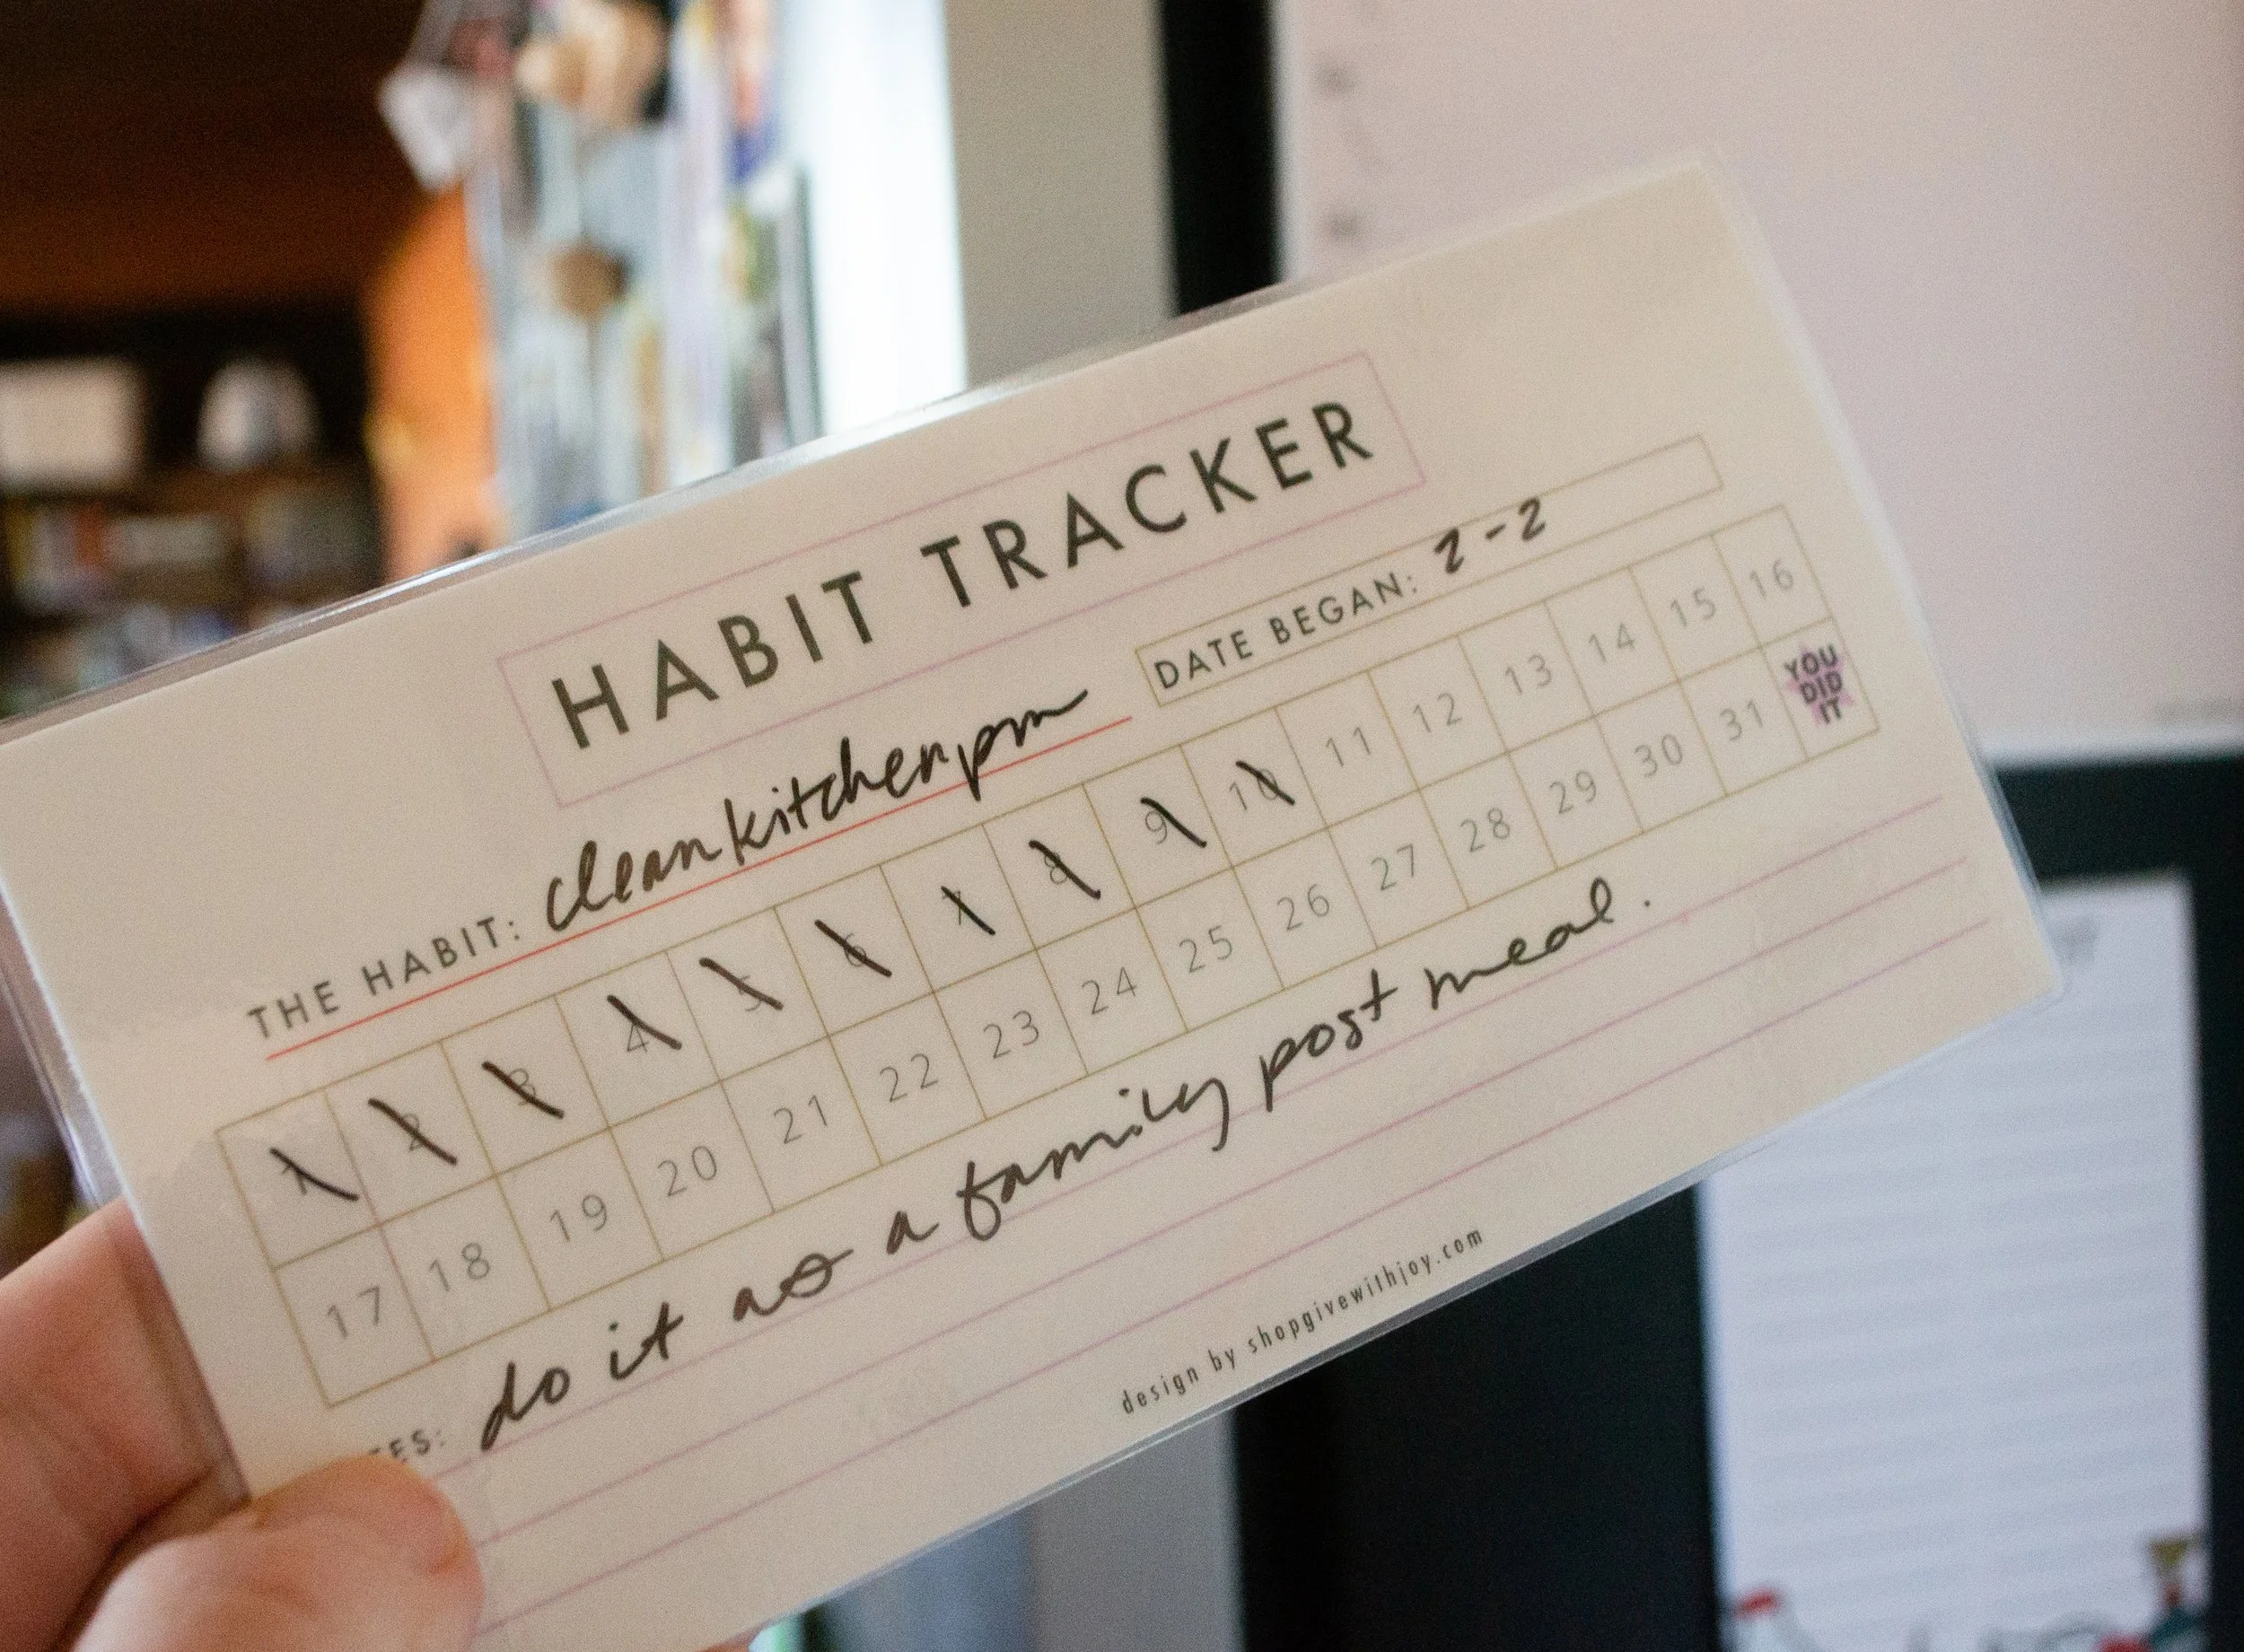 HABIT TRACKER
THE HABIT: clean kitchen pm DATE BEGAN: 2-2
1 2 3 4 5 6 7 8 9 10 11 12 13 14 15 16
17 18 19 20 21 22 23 24 25 26 27 28 29 30 31 YOU DID IT
ES: do it as a family post meal.
design by shopgivewithjoy.com